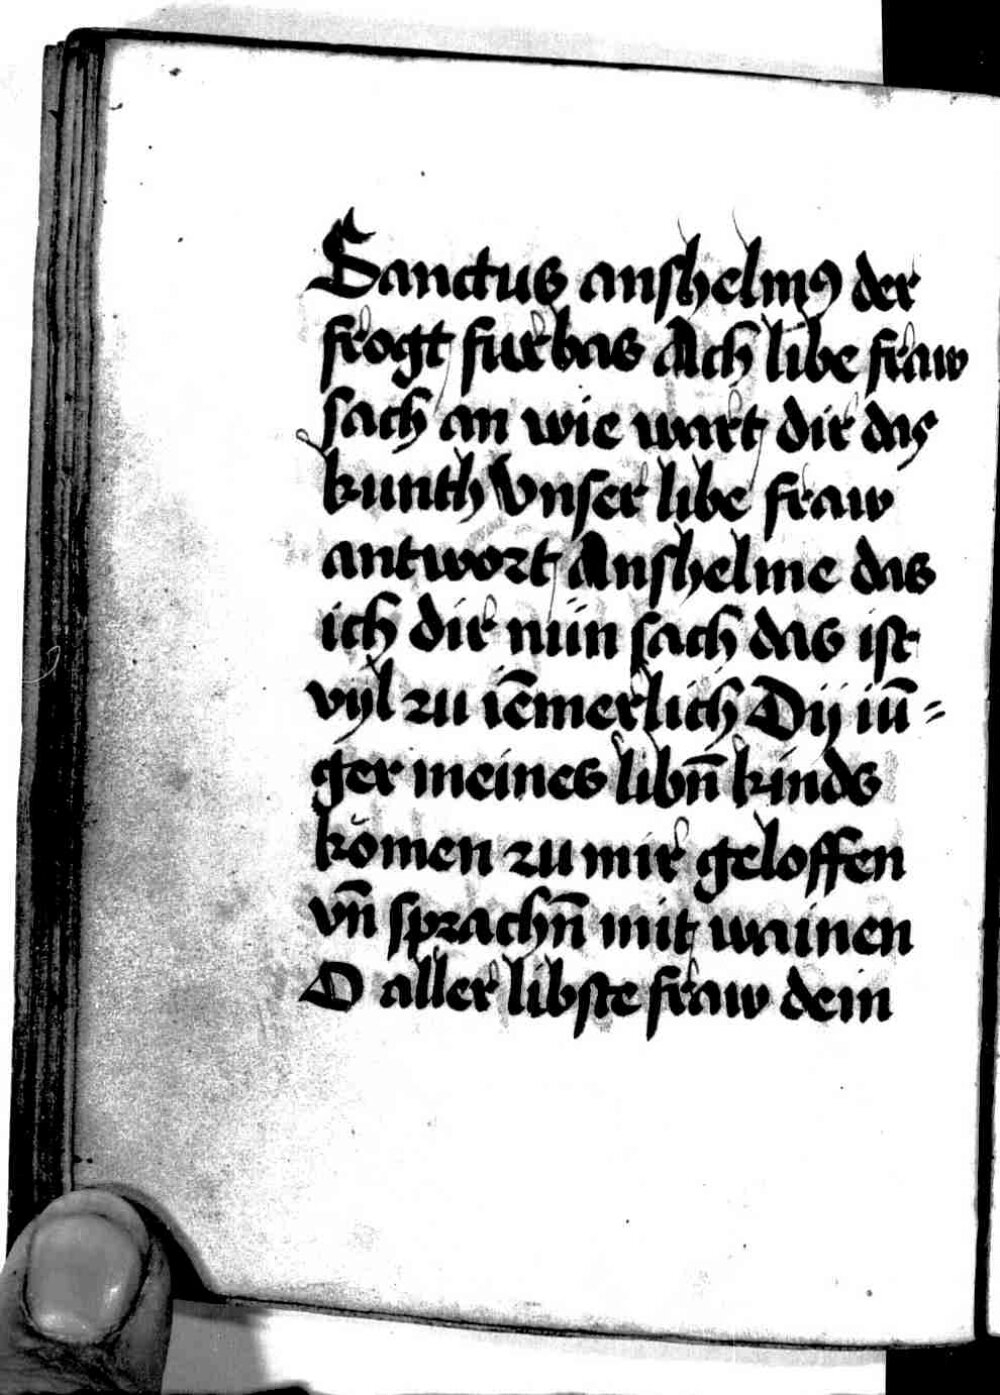 Sanctus anshelmꝰ der
frogt furbas Ach libe fraw
sach an wie wart dir das
kunth Vnser libe fraw
antwort Anshelme das
ich dir nün sach das ist
vyl zu iēmerlich Dij iū=
ger meines libn̄ kinds
kömen zu mir geloffen
vn̄ sprachn̄ mit wainen
O aller libste fraw dein